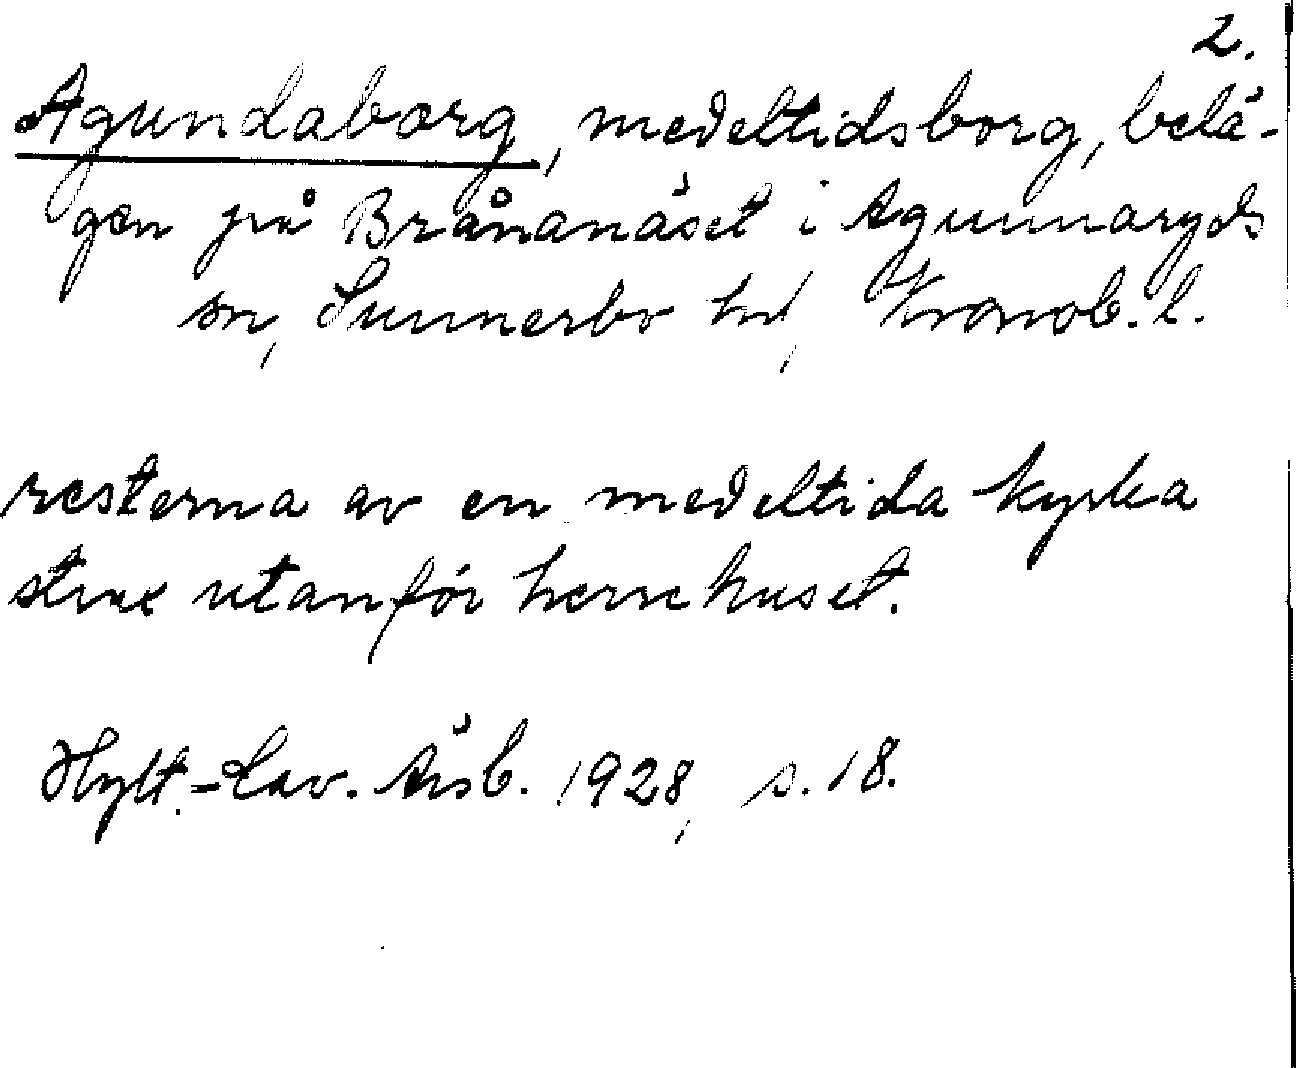 2.
Agundaborg, medeltidsborg, belä-
gen på Brånanäset i Agunnaryds
sn, Sunnerbo hd, Kronob. l.
resterna av en medeltida kyrka
strax utanför herrehuset.
Hylt.-Cav. Årsb. 1928, s. 18.